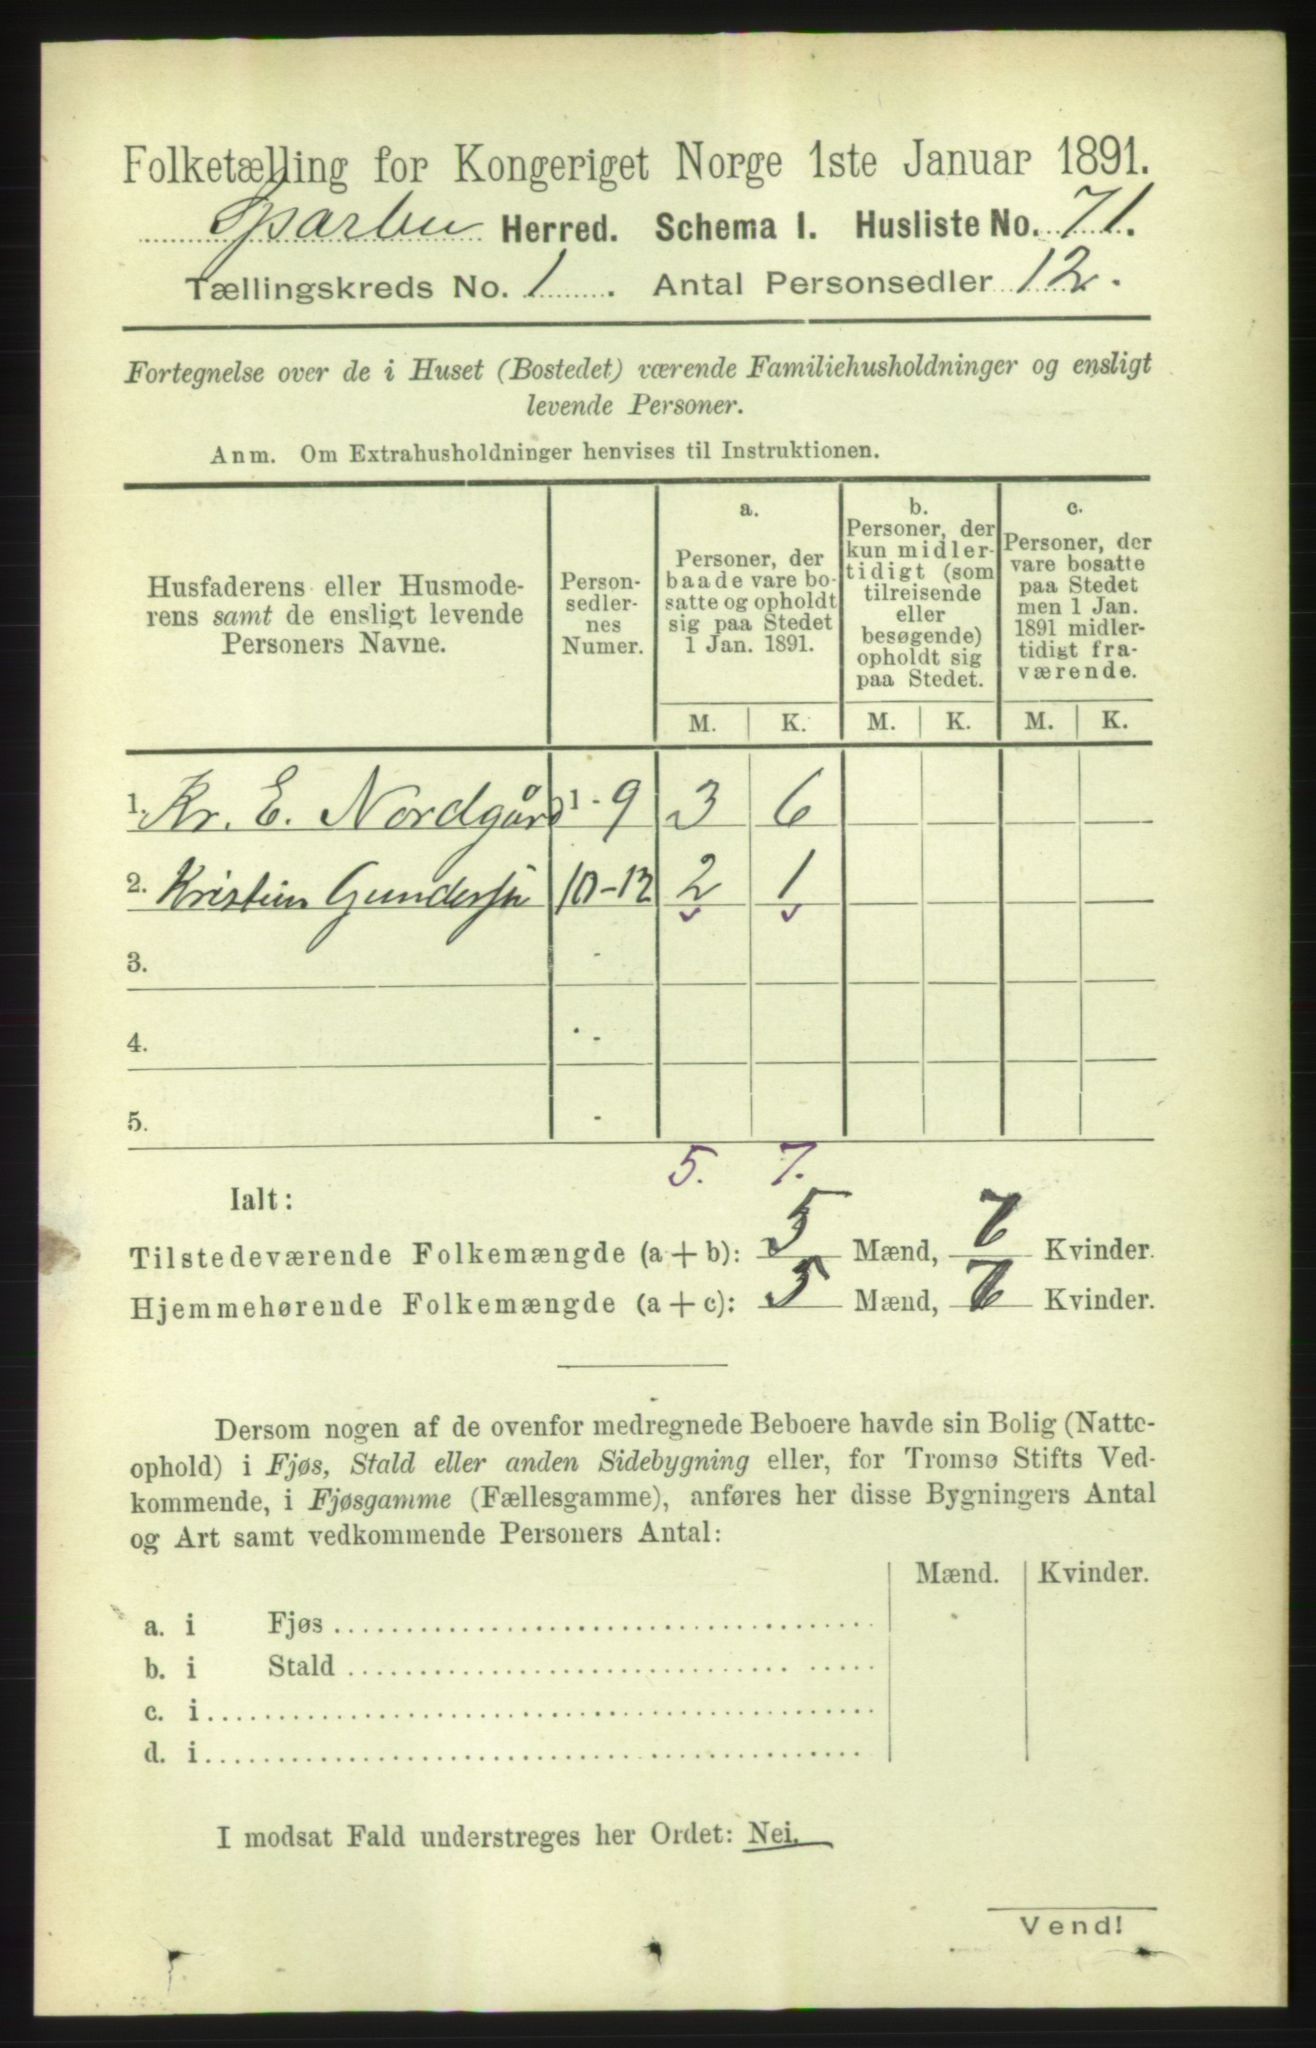 Folketælling for Kongeriget Norge 1ste Januar 1891.
Sparbu Herred. Schema I. Husliste No. 71.
Tællingskreds No. 1. Antal Personsedler 12.
Fortegnelse over de i Huset (Bostedet) værende Familiehusholdninger og ensligt
levende Personer.
Anm. Om Extrahusholdninger henvises til Instruktionen.
Husfaderens eller Husmode-
rens samt de ensligt levende
Personers Navne.
Person-
sedler-
nes
Numer.
a.
Personer, der
baade vare bo-
satte og opholdt
sig paa Stedet
1 Jan. 1891.
b.
Personer, der
kun midler-
tidigt (som
tilreisende
eller
besøgende)
opholdt sig
paa Stedet.
c.
Personer, der
vare bosatte
paa Stedet
men 1 Jan.
1891 midler-
tidigt fra-
værende.
M. K. M. K. M. K.
1. Kr. E. Nordgård 1 - 9 3 6
2. Kristian Gundersen 10-12 2 1
3. -
4. -
5. -
5. 7.
Ialt:
Tilstedeværende Folkemængde (a + b): 5 Mænd, 7 Kvinder.
Hjemmehørende Folkemængde (a + c): 5 Mænd, 7 Kvinder.
Dersom nogen af de ovenfor medregnede Beboere havde sin Bolig (Natte-
ophold) i Fjøs, Stald eller anden Sidebygning eller, for Tromsø Stifts Ved-
kommende, i Fjøsgamme (Fællesgamme), anføres her disse Bygningers Antal
og Art samt vedkommende Personers Antal:
Mænd. Kvinder.
a. i Fjøs
b. i Stald
c. i
d. i
I modsat Fald understreges her Ordet: Nei.
Vend!